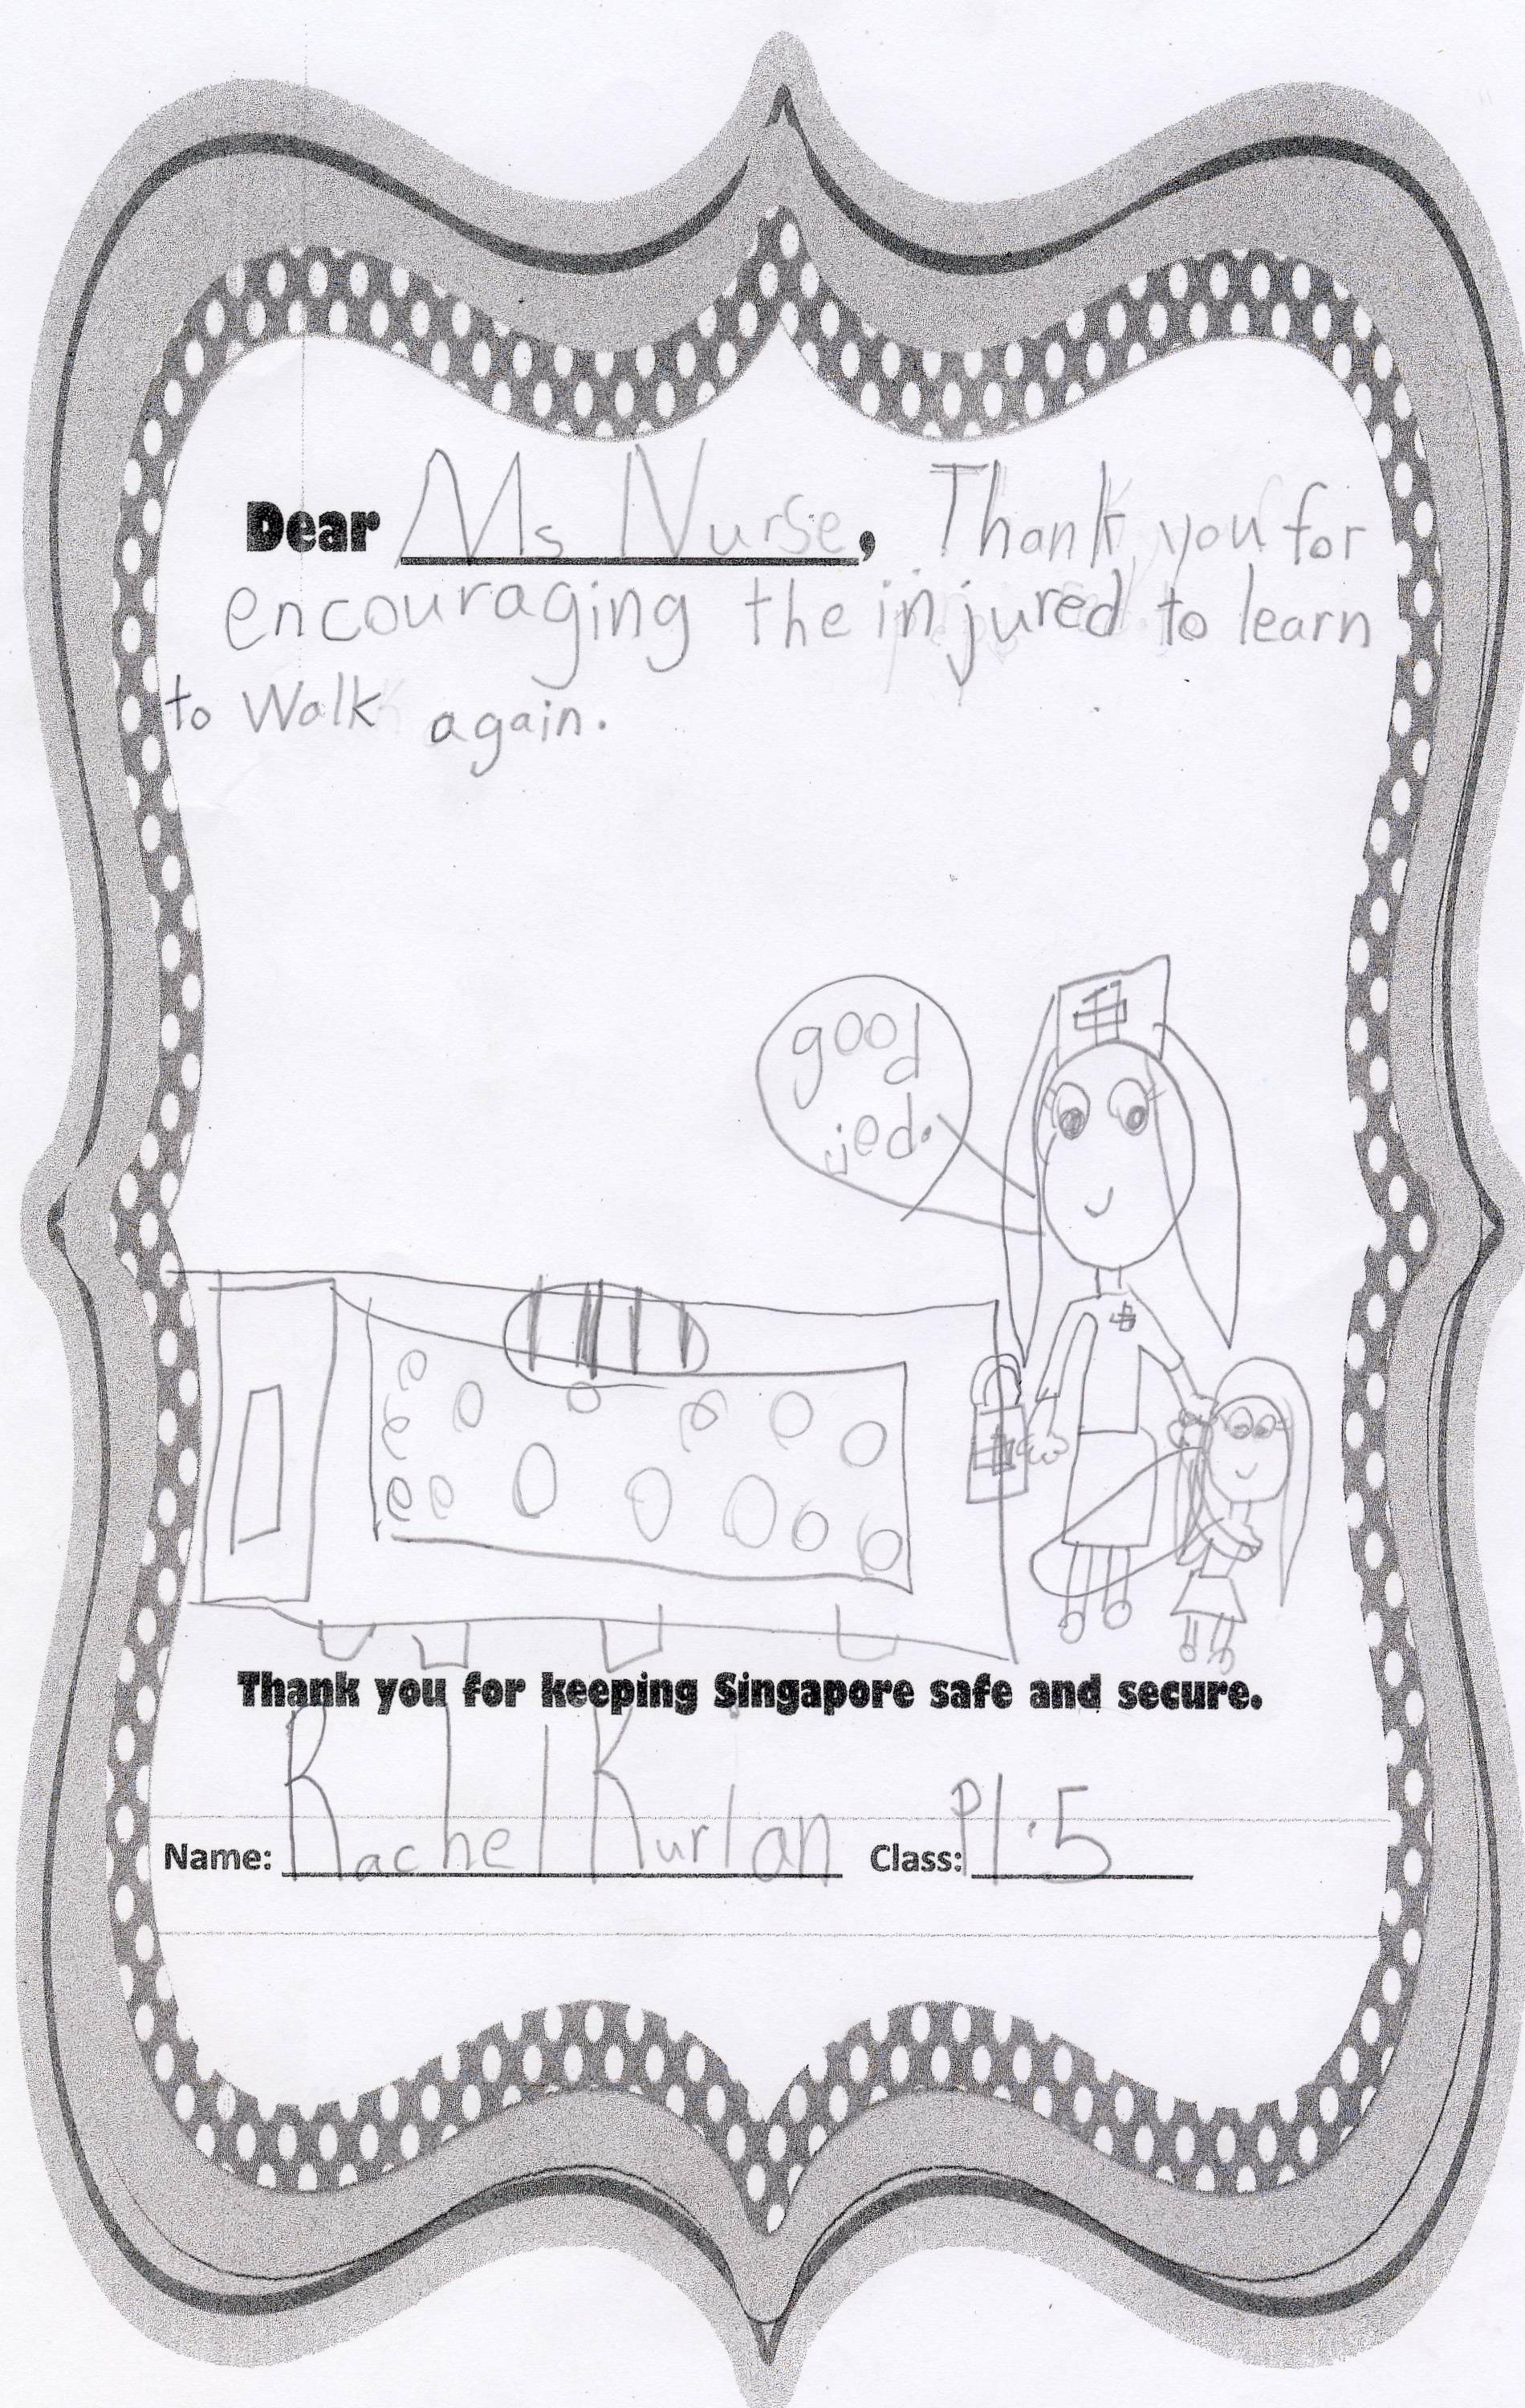 Dear Ms Nurse, Thank you for
encouraging the injured to learn
to Walk again.
good
jed.
Thank you for keeping Singapore safe and secure.
Name: Rachel Kurlan Class: P1.5